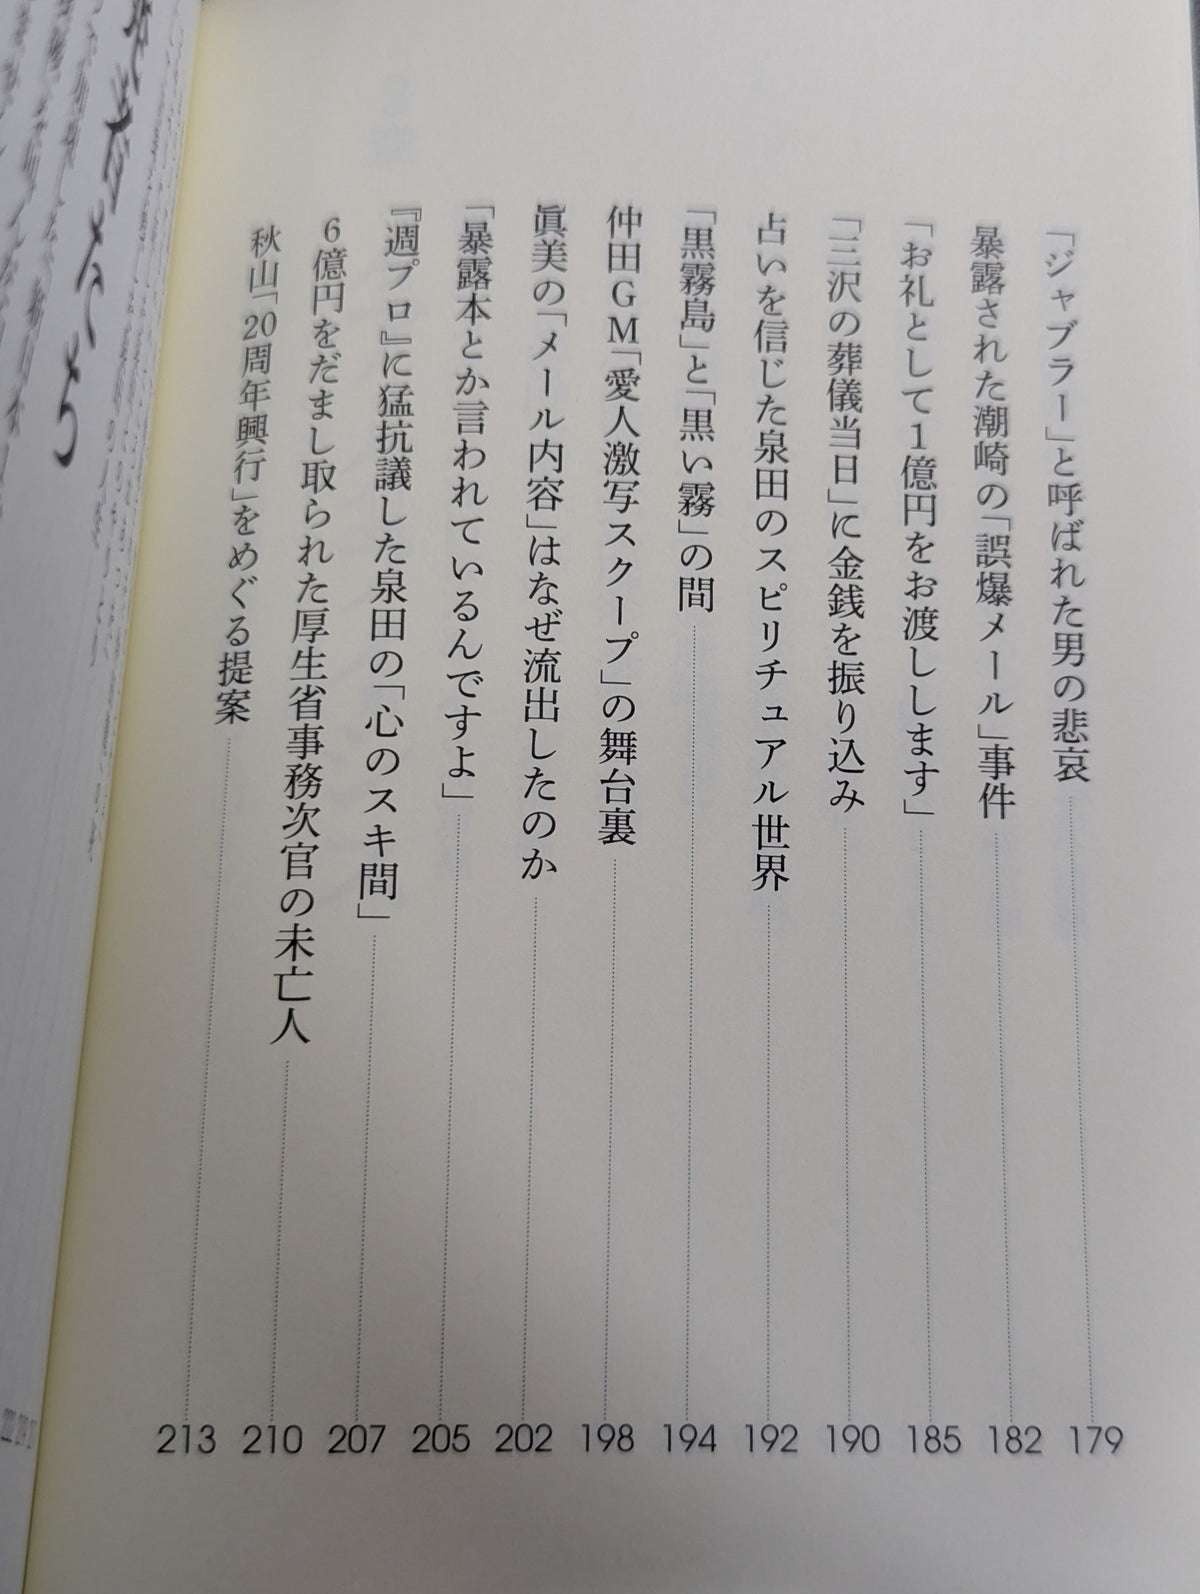 「ジャブラー」と呼ばれた男の悲哀 179
暴露された潮崎の「誤爆メール」事件 182
「お礼として1億円をお渡しします」 185
「三沢の葬儀当日」に金銭を振り込み 190
占いを信じた泉田のスピリチュアル世界 192
「黒霧島」と「黒い霧」の間 194
仲田GM「愛人激写スクープ」の舞台裏 198
眞美の「メール内容」はなぜ流出したのか 202
「暴露本とか言われているんですよ」 205
『週プロ』に猛抗議した泉田の「心のスキ間」 207
6億円をだまし取られた厚生省事務次官の未亡人 210
秋山「20周年興行」をめぐる提案 213